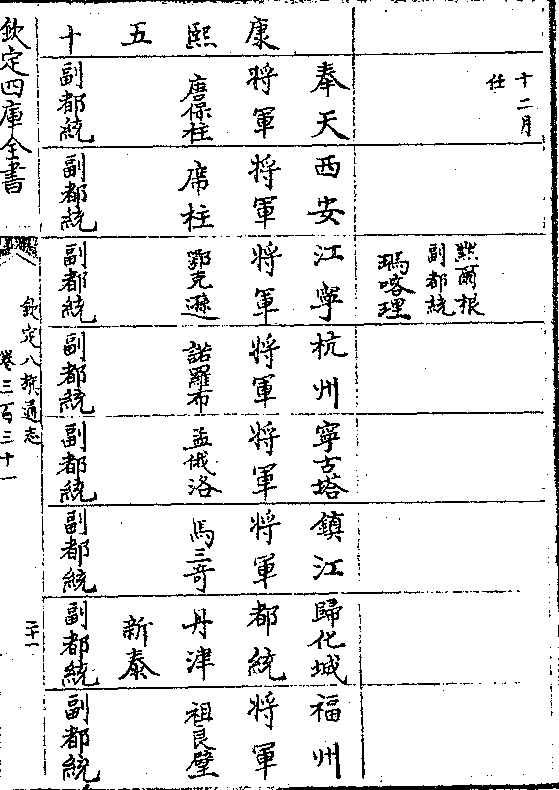 十二月
任
黙爾根
副都統
瑪喀理
康熙五十
奉天
將軍
唐保柱
副都統
西安
將軍
席柱
副都統
江寧
將軍
鄂克遜
副都統
杭州
將軍
諾羅布
副都統
寧古塔
將軍
孟俄洛
副都統
鎮江
將軍
馬三奇
副都統
歸化城
都統
丹津
新泰
副都統
福州
將軍
祖良璧
副都統
欽定四庫全書
欽定八旗通志
卷三百三十一
二十一